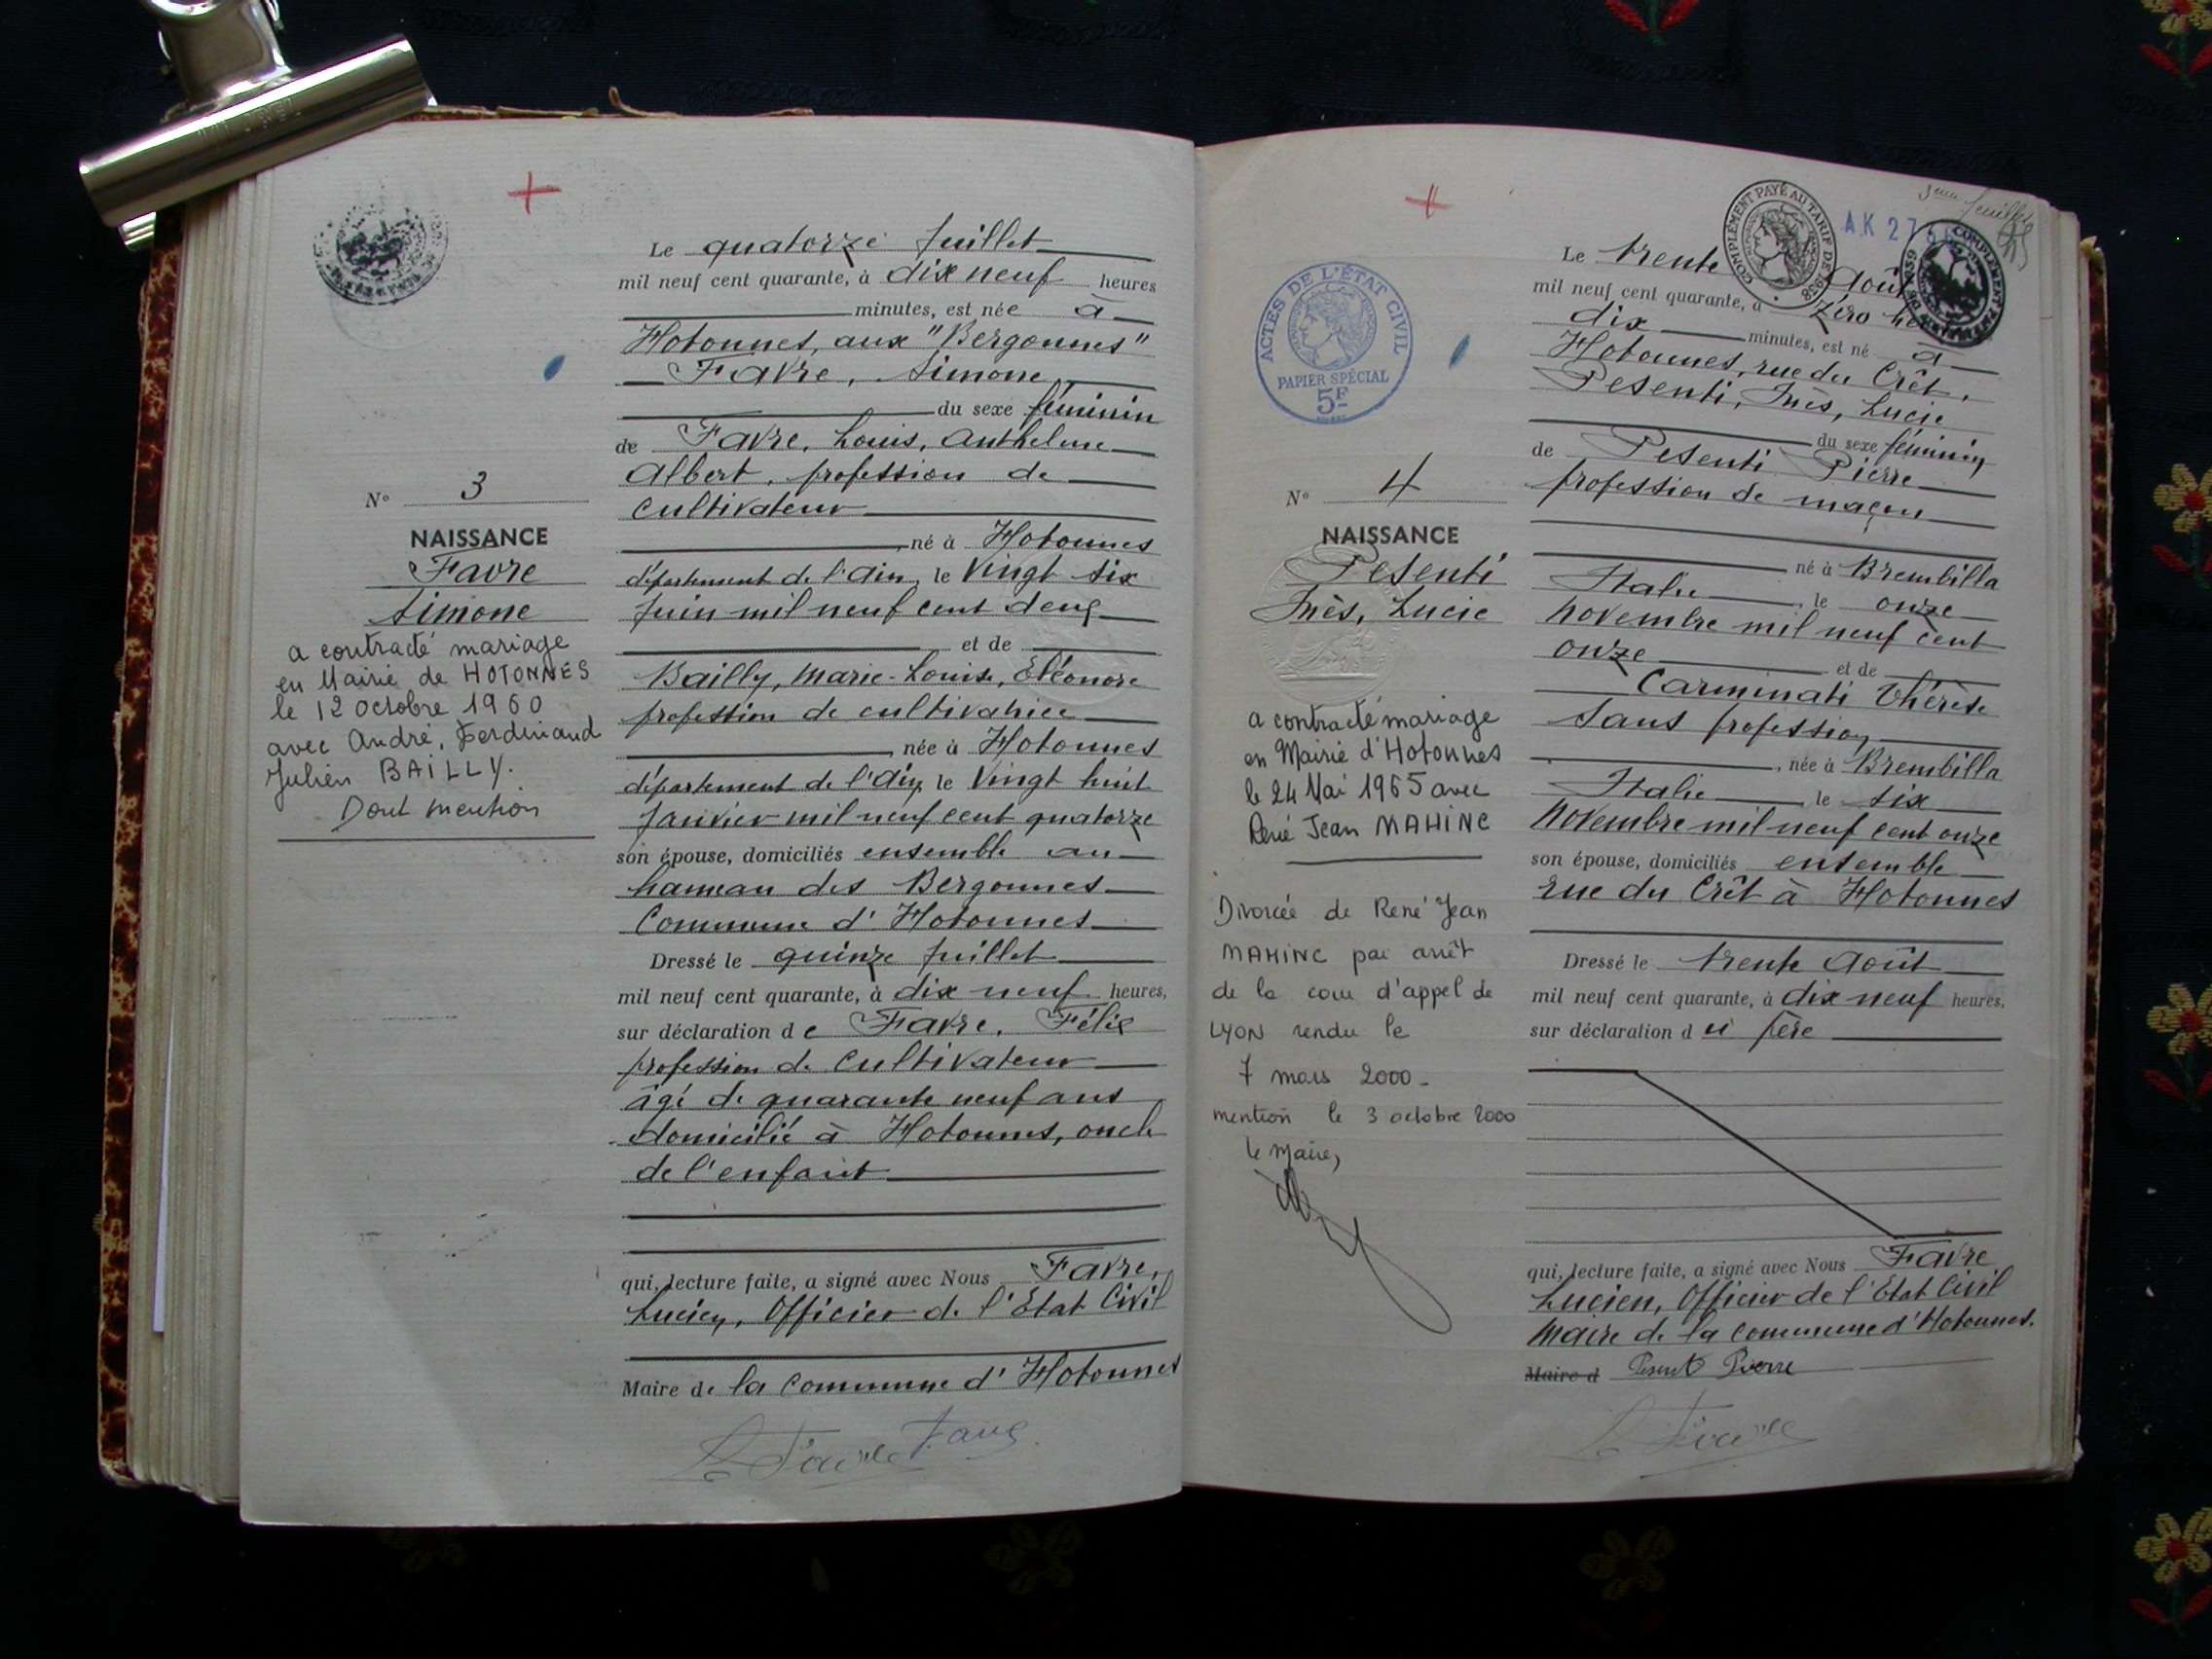 Le quatorze juillet
mil neuf cent quarante, à dix neuf heures
minutes, est née à
Hotonnes, aux "Bergonnes"
Favre, Simone
du sexe féminin
de Favre, Louis, Anthelme
Albert, profession de
cultivateur
né à Hotonnes
département de l'Ain, le vingt six
juin mil neuf cent deux
et de
Bailly, Marie-Louise, Eléonore
profession de cultivatrice
née à Hotonnes
département de l'Ain, le vingt huit
janvier mil neuf cent quatorze
son épouse, domiciliés ensemble au
hameau des Bergonnes
Commune d'Hotonnes
Dressé le quinze juillet
mil neuf cent quarante, à dix neuf heures,
sur déclaration de Favre, Félix
profession de cultivateur
âgé de quarante neuf ans
domicilié à Hotonnes, oncle
de l'enfant
qui, lecture faite, a signé avec Nous Favre,
Lucien, Officier de l'Etat Civil
Maire de la Commune d'Hotonnes
L Favre Favre
N° 3
NAISSANCE
Favre
Simone
a contracté mariage
en Mairie de HOTONNES
le 12 octobre 1960
avec André, Ferdinand
Julien BAILLY.
Dont mention
ACTES DE L'ÉTAT CIVIL
PAPIER SPÉCIAL
5F
COMPLÉMENT PAYÉ AU TARIF DE 1938
AK 27
feuillet
Le trente Août
mil neuf cent quarante, à zéro he
dix minutes, est né à
Hotonnes, rue du Crêt,
Pesenti, Inès, Lucie
du sexe féminin
de Pesenti Pierre
profession de maçon
né à Brembilla
Italie, le onze
novembre mil neuf cent
onze et de
Carminati Thérèse
sans profession
, née à Brembilla
Italie, le six
novembre mil neuf cent onze
son épouse, domiciliés ensemble
rue du Crêt à Hotonnes
Dressé le trente Août
mil neuf cent quarante, à dix neuf heures,
sur déclaration du père
qui, lecture faite, a signé avec Nous Favre
Lucien, Officier de l'Etat Civil
Maire de la Commune d'Hotonnes.
Maire d Pesenti Pierre
L Favre
N° 4
NAISSANCE
Pesenti
Inès, Lucie
a contracté mariage
en Mairie d'Hotonnes
le 24 Mai 1965 avec
René Jean MAHINC
Divorcée de René Jean
MAHINC par arrêt
de la cour d'appel de
LYON rendu le
7 mars 2000-
mention le 3 octobre 2000
le Maire,